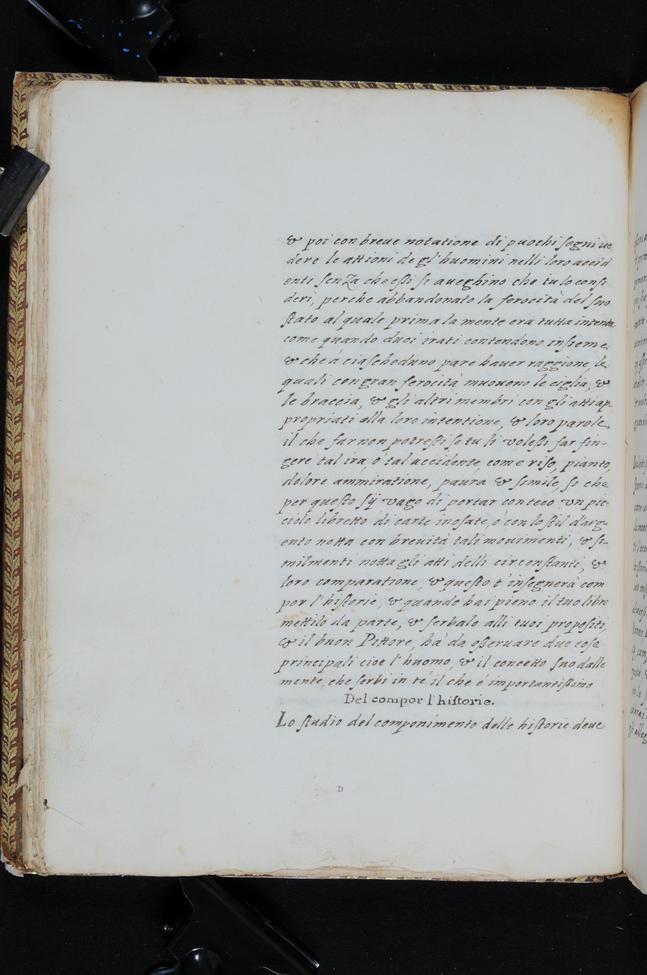 & poi con breve notatione di puochi segni ve
dere le attioni de gl'huomini nelli loro accid
enti senza che essi si aveghino che tu lo consi-
deri, perche abbandonato la ferocità del suo
stato al quale prima la mente era tutta intenta
come quando duoi irati contendono insieme,
& che à ciascheduno pare haver raggione, le
quali con gran ferocità muovono le ciglia, &
le braccia, & gli altri membri con gli atti ap
propriati alla loro intentione, & loro parole
il che far non potressi se tu li volessi far fin-
gere tal ira, ò tal accidente, come riso, pianto,
dolore ammiratione, paura & simile, si che
per questo sij vago di portar con teco un pic
ciolo libretto di carte inosate, ò con lo stil d'arg
ento notta con brevità tali movimenti, & si-
milmenti notta gli atti delli circonstanti, &
loro comparatione, & questo t'insegnerà com
por l'historie, & quando hai pieno il tuo libro
mettilo da parte, & serbalo alli tuoi propositi,
& il buon Pittore, hà da osservare due cose
principali cioe l'huomo, & il concetto suo dalla
mente, che serbi in te il che è importantissimo
Del compor l'historie.
Lo studio del componimento delle historie deve
D